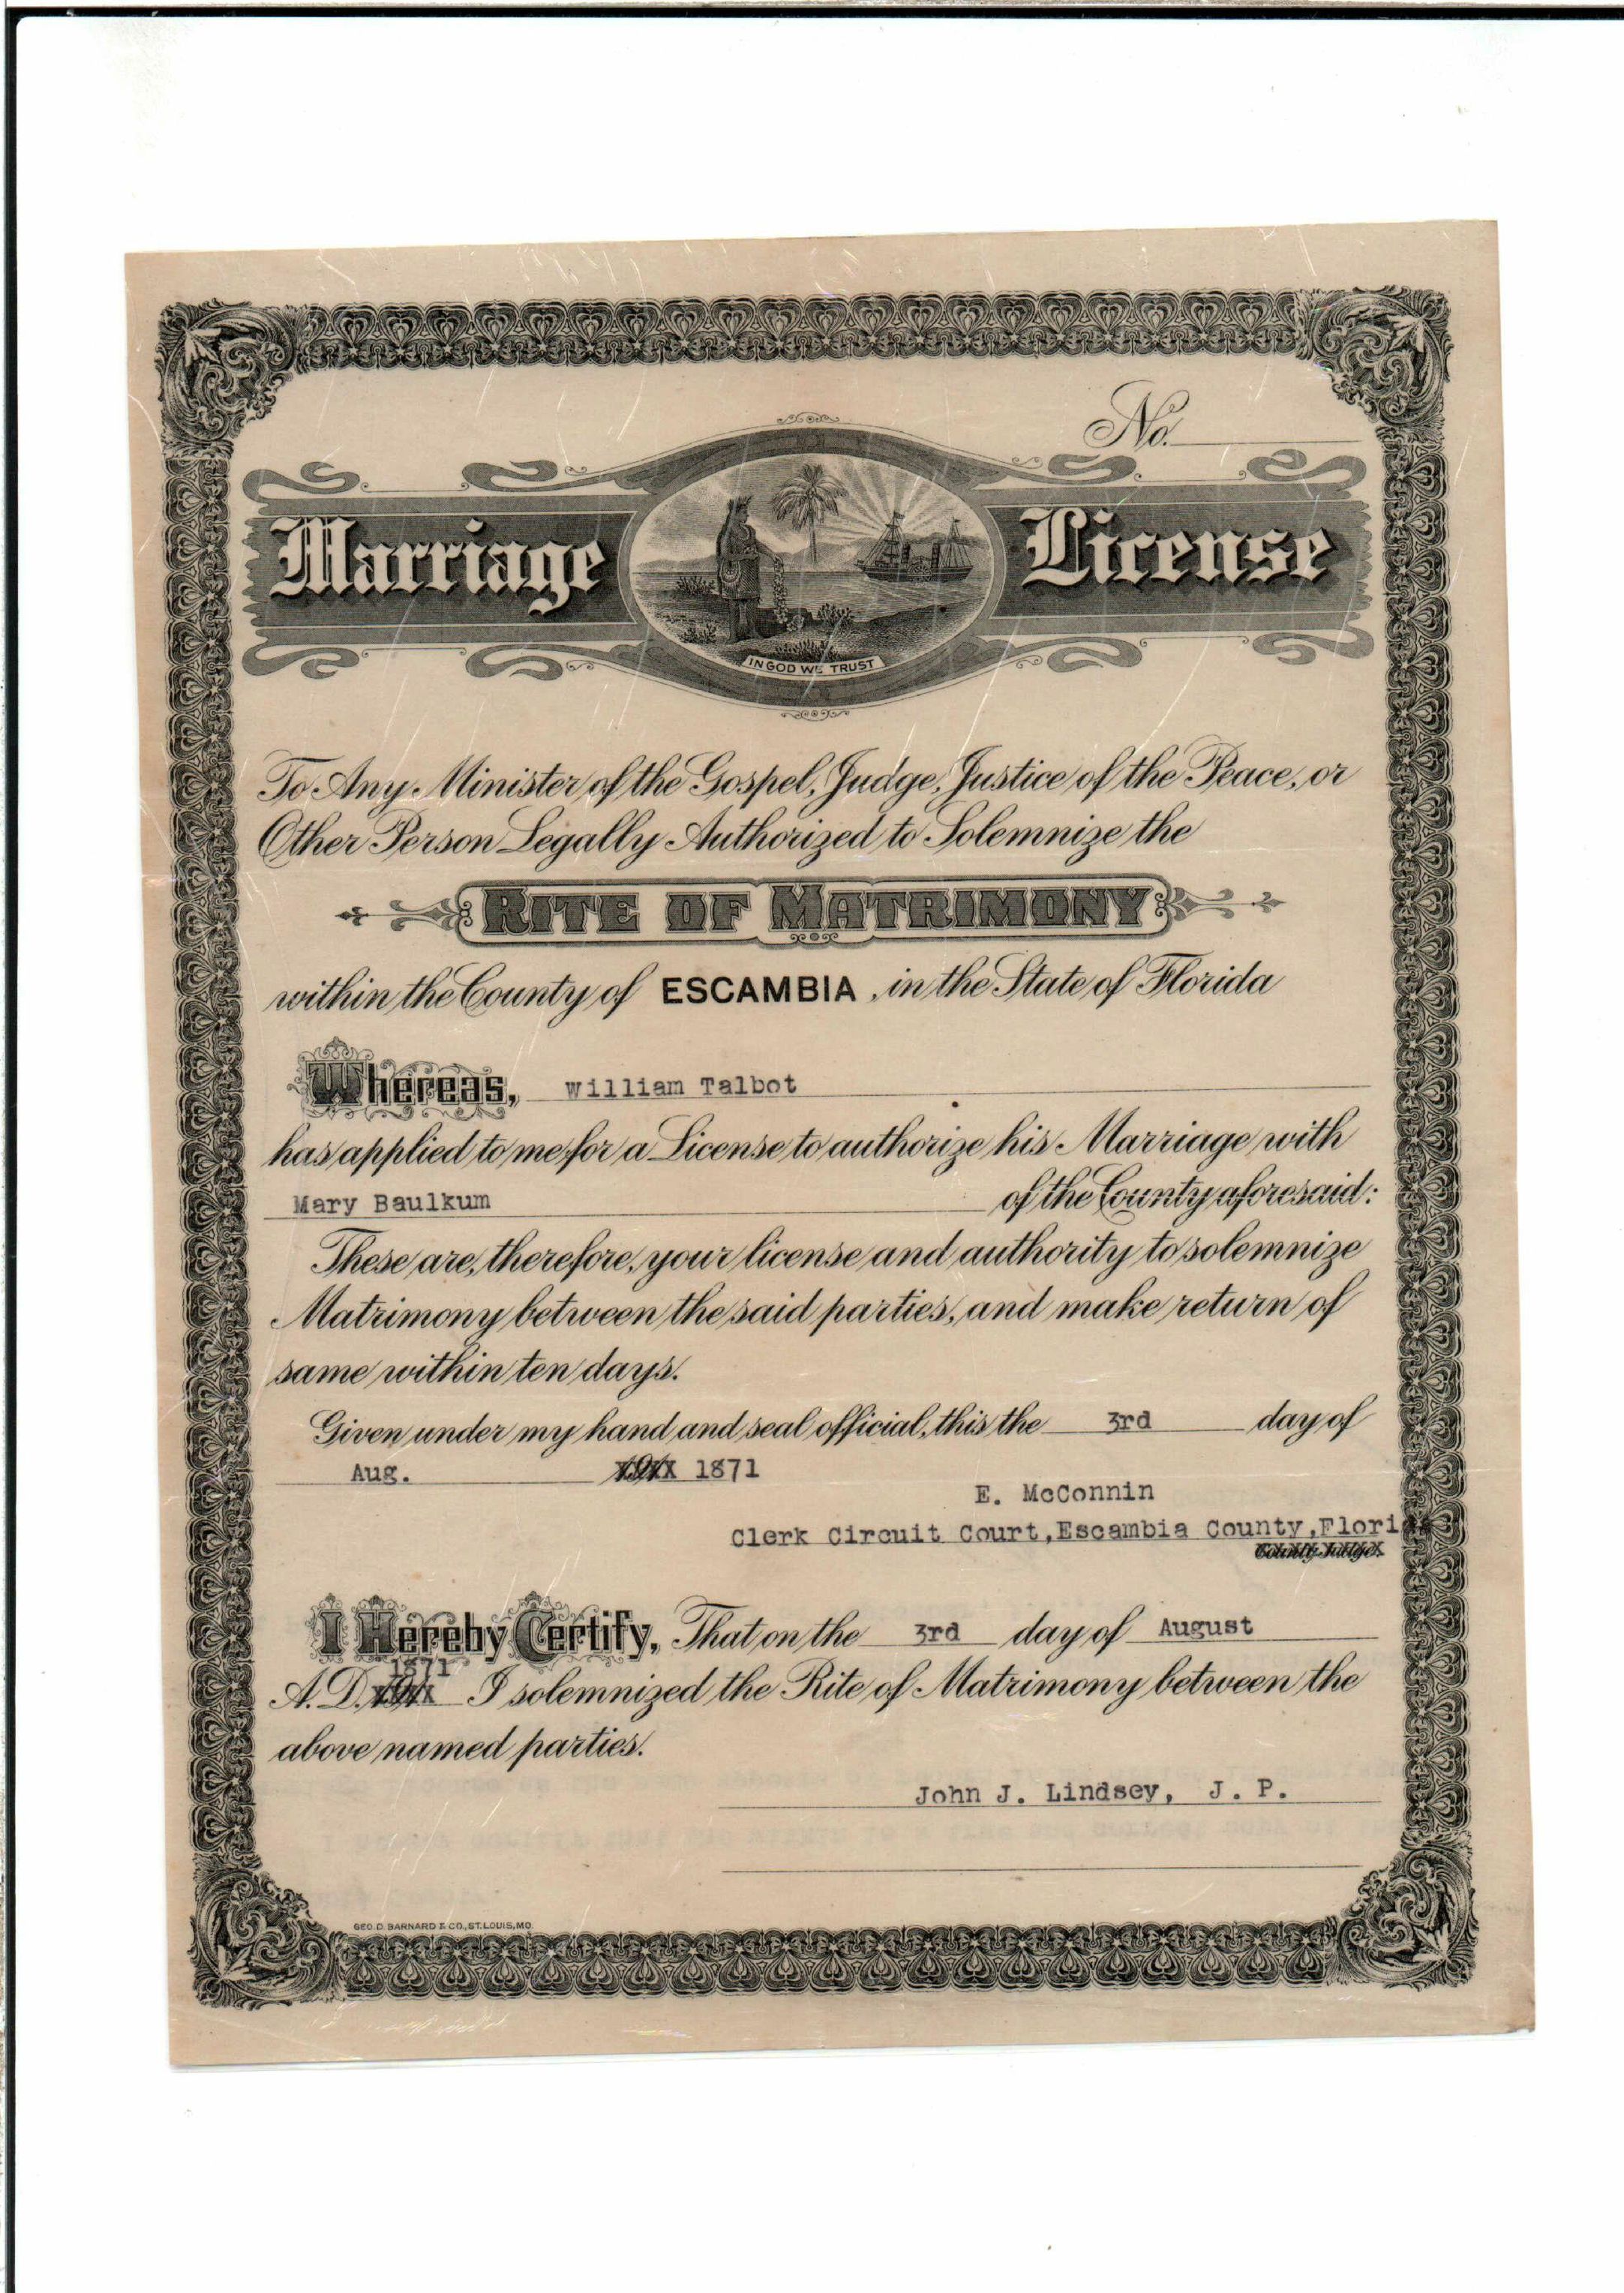 No.
Marriage License
IN GOD WE TRUST
To Any Minister of the Gospel, Judge, Justice of the Peace, or
Other Person Legally Authorized to Solemnize the
RITE OF MATRIMONY
within the County of ESCAMBIA, in the State of Florida
Whereas, William Talbot
has applied to me for a License to authorize his Marriage with
Mary Baulkum of the County aforesaid:
These are, therefore, your license and authority to solemnize
Matrimony between the said parties, and make return of
same within ten days.
Given under my hand and seal official, this the 3rd day of
Aug. 1871
E. McConnin
Clerk Circuit Court, Escambia County, Flori
County Judge.
I Hereby Certify, That on the 3rd day of August
1871
A. D. I solemnized the Rite of Matrimony between the
above named parties.
John J. Lindsey, J. P.
GEO. D. BARNARD & CO., ST. LOUIS, MO.